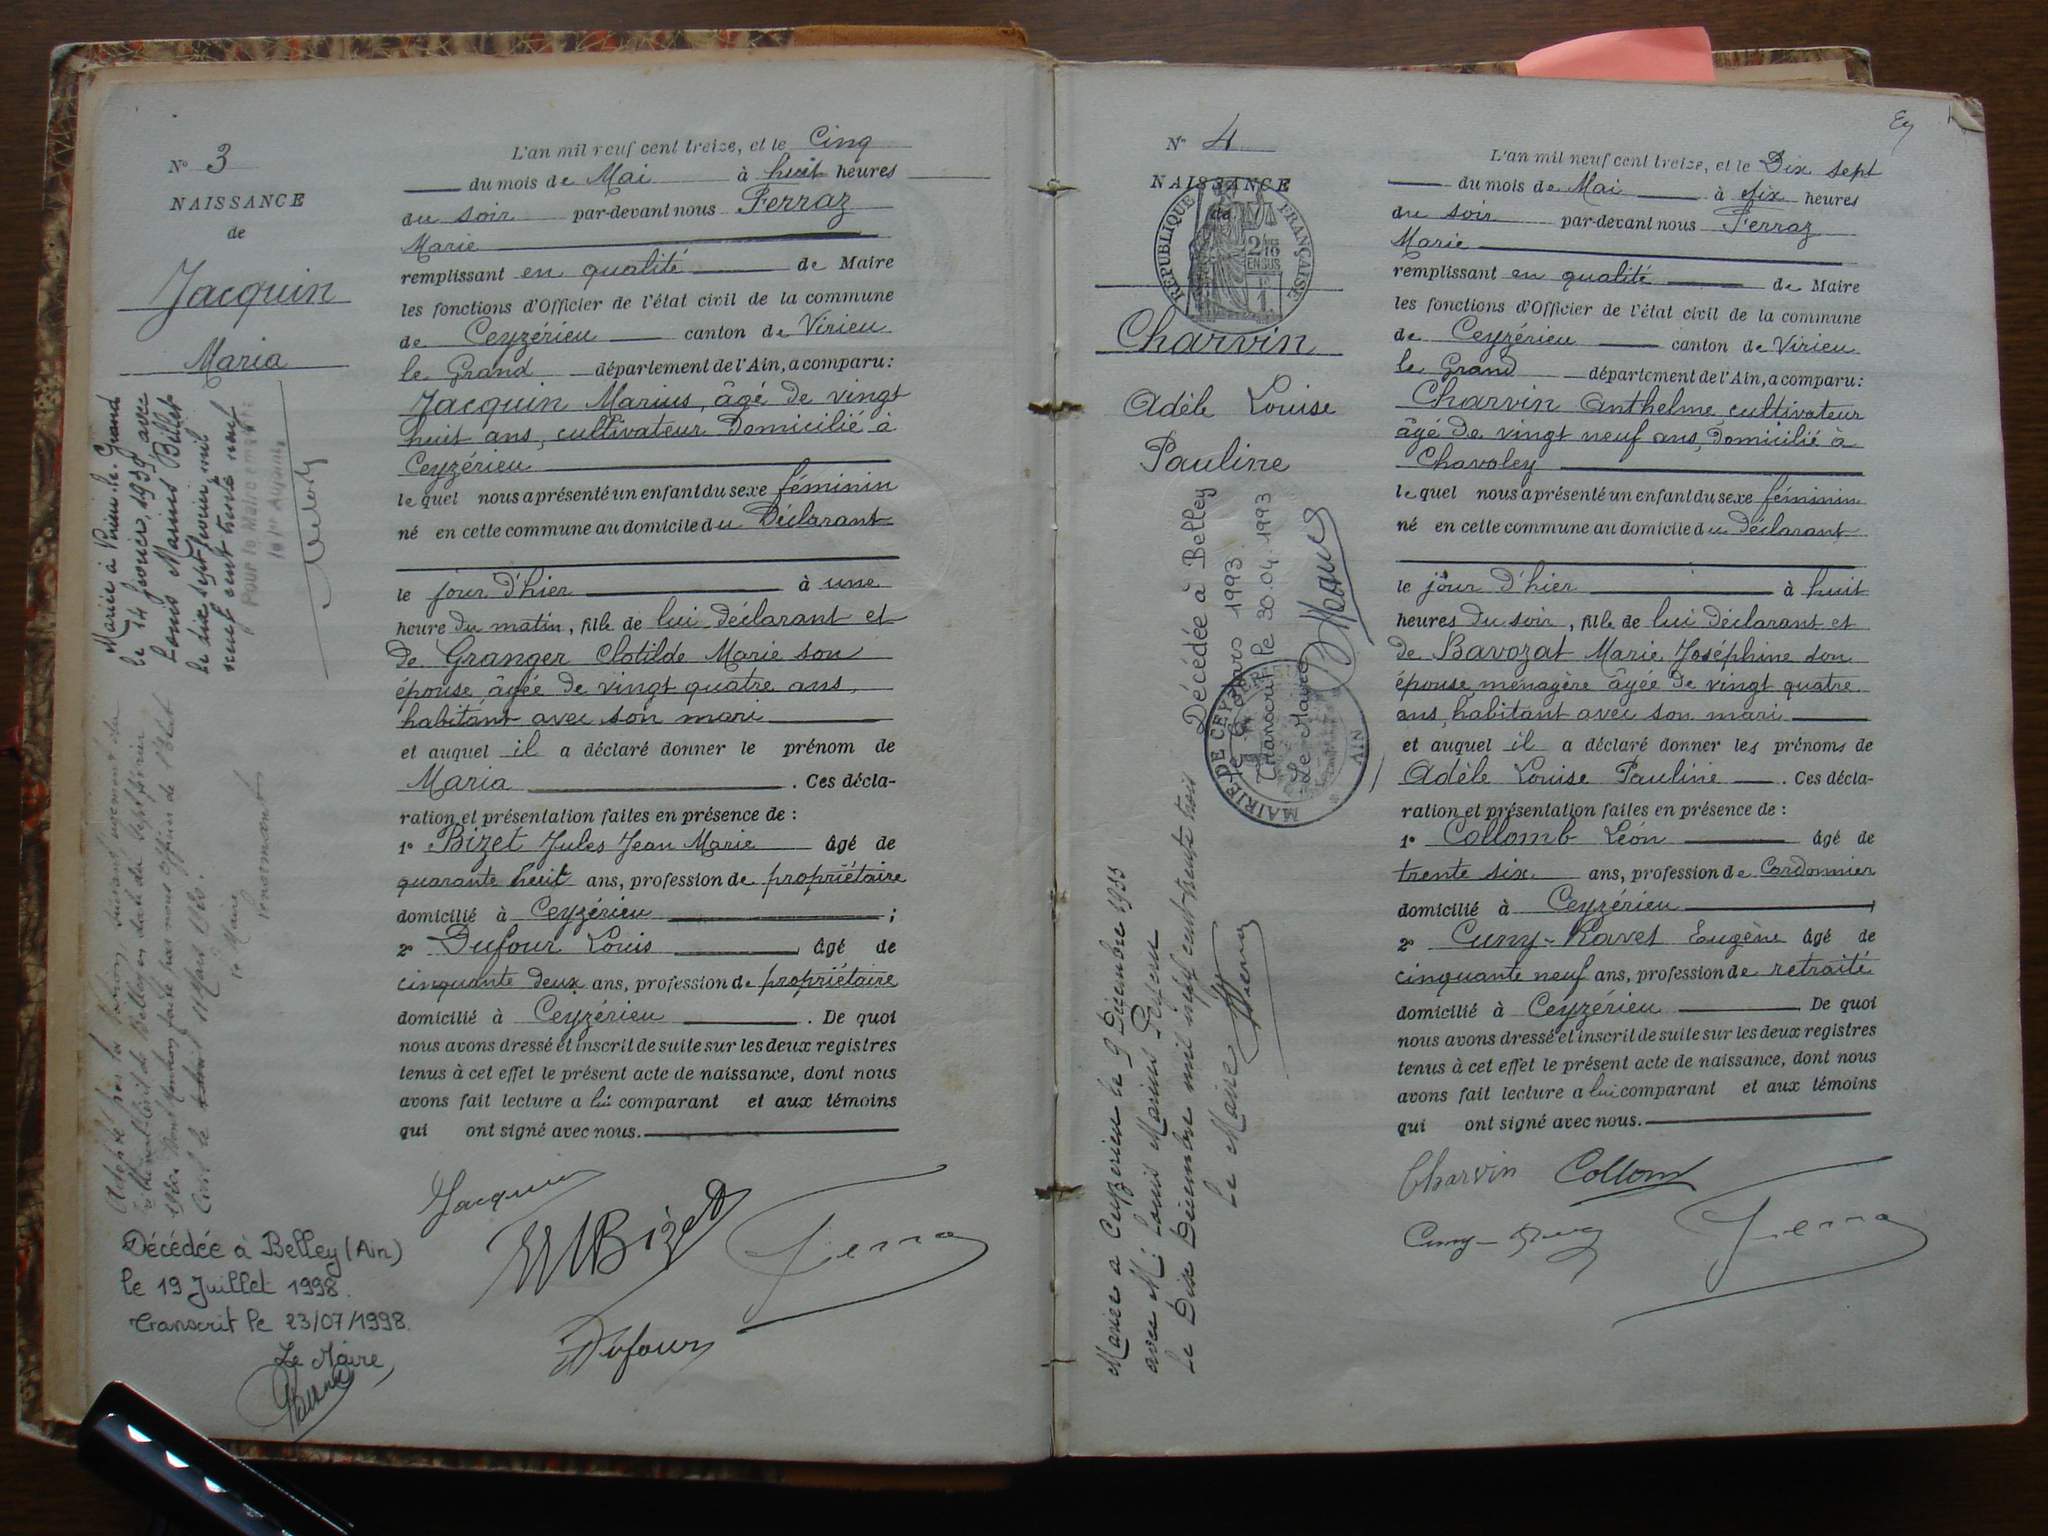 N° 3
NAISSANCE
de
Jacquin
Maria
L'an mil neuf cent treize, et le Cinq
du mois de Mai à huit heures
du soir par-devant nous Ferraz
Marie
remplissant en qualité de Maire
les fonctions d'Officier de l'état civil de la commune
de Ceyzérieu canton de Virieu
le Grand département de l'Ain, a comparu :
Jacquin Marius, âgé de vingt
huit ans, cultivateur domicilié à
Ceyzérieu
lequel nous a présenté un enfant du sexe féminin
né en cette commune au domicile du Déclarant
le jour d'hier à une
heure du matin, fille de lui déclarant et
de Granger Clotilde Marie son
épouse âgée de vingt quatre ans,
habitant avec son mari
et auquel il a déclaré donner le prénom de
Maria . Ces décla-
ration et présentation faites en présence de :
1° Bizet Jules Jean Marie âgé de
quarante huit ans, profession de propriétaire
domicilié à Ceyzérieu ;
2° Dufour Louis , âgé de
cinquante deux ans, profession de propriétaire
domicilié à Ceyzérieu . De quoi
nous avons dressé et inscrit de suite sur les deux registres
tenus à cet effet le présent acte de naissance, dont nous
avons fait lecture a lui comparant et aux témoins
qui ont signé avec nous.
Jacquin
Bizet
Ferraz
Dufour
Mariée à Virieu-le-Grand
le 14 1939 avec
Louis Marius
le dix sept février mil
neuf cent trente neuf
Pour le Maire empêché
le 1er Adjoint
Adoptée par la Nation, suivant jugement du
tribunal civil de Belley en date du sept février
1920. Mention faite par nous officier de l'Etat
Civil le 11 Mars 1920.
le Maire
Décédée à Belley (Ain)
le 19 Juillet 1998.
Transcrit le 23/07/1998.
Le Maire,
N° 4
NAISSANCE
de
RÉPUBLIQUE FRANÇAISE
2/10
EN SUS
Charvin
Adèle Louise
Pauline
L'an mil neuf cent treize, et le Dix sept
du mois de Mai à six heures
du soir par-devant nous Ferraz
Marie
remplissant en qualité de Maire
les fonctions d'Officier de l'état civil de la commune
de Ceyzérieu canton de Virieu
le Grand département de l'Ain, a comparu :
Charvin Anthelme cultivateur
âgé de vingt neuf ans, domicilié à
Chavoley
lequel nous a présenté un enfant du sexe féminin
né en cette commune au domicile du déclarant
le jour d'hier à huit
heures du soir, fille de lui déclarant et
de Bavozat Marie Joséphine son
épouse ménagère âgée de vingt quatre
ans, habitant avec son mari
et auquel il a déclaré donner les prénoms de
Adèle Louise Pauline . Ces décla-
ration et présentation faites en présence de :
1° Collomb Léon âgé de
trente six ans, profession de Cordonnier
domicilié à Ceyzérieu
2° Cuny-Ravet Eugène âgé de
cinquante neuf ans, profession de retraité
domicilié à Ceyzérieu De quoi
nous avons dressé et inscrit de suite sur les deux registres
tenus à cet effet le présent acte de naissance, dont nous
avons fait lecture a lui comparant et aux témoins
qui ont signé avec nous.
Charvin Collomb
Cuny-Ravet Ferraz
Décédée à Belley
le Mars 1993.
Transcrit le 30.04.1993
Le Maire
MAIRIE DE CEYZERIEU
AIN
Mariée à Ceyzérieu le 9 Décembre 1933
avec M. Louis Marius
le Dix Décembre mil neuf cent trente trois
Le Maire